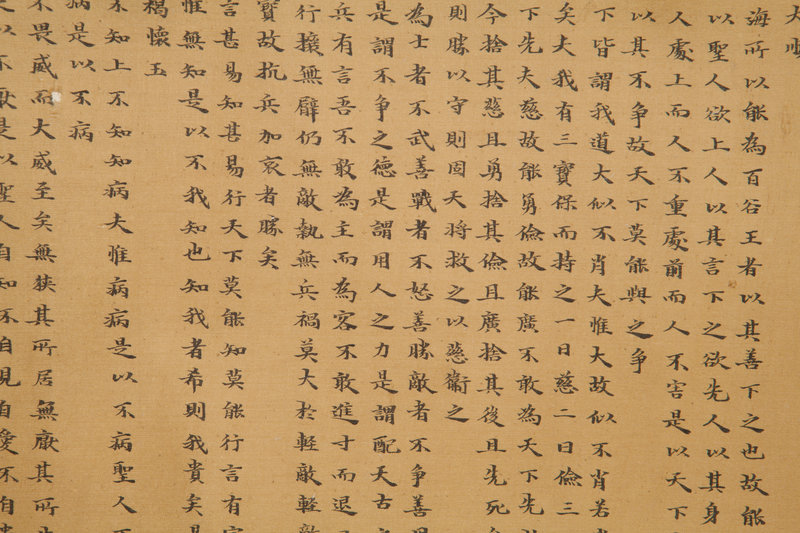 大順
海所以能為百谷王者以其善下之也故能
以聖人欲上人以其言下之欲先人以其身
人處上而人不重處前而人不害是以天下
以其不争故天下莫能與之争
下皆謂我道大似不肖夫惟大故似不肖若
矣夫我有三寶保而持之一曰慈二曰儉三
下先夫慈故能勇儉故能廣不敢為天下先
今捨其慈且勇捨其儉且廣捨其後且先死
則勝以守則固天將救之以慈衛之
為士者不武善戰者不怒善勝敵者不争善
是謂不争之德是謂用人之力是謂配天古
兵有言吾不敢為主而為客不敢進寸而退
行攘無臂仍無敵執無兵禍莫大於軽敵軽敵
寶故抗兵加哀者勝矣
言甚易知甚易行天下莫能知莫能行言有
惟無知是以不我知也知我者希則我貴矣是
褐懷玉
不知上不知知病夫惟病病是以不病聖人不
病是以不病
不畏威而大威至矣無狹其所居無厭其所
以不厭是以聖人自知不自見自愛不自